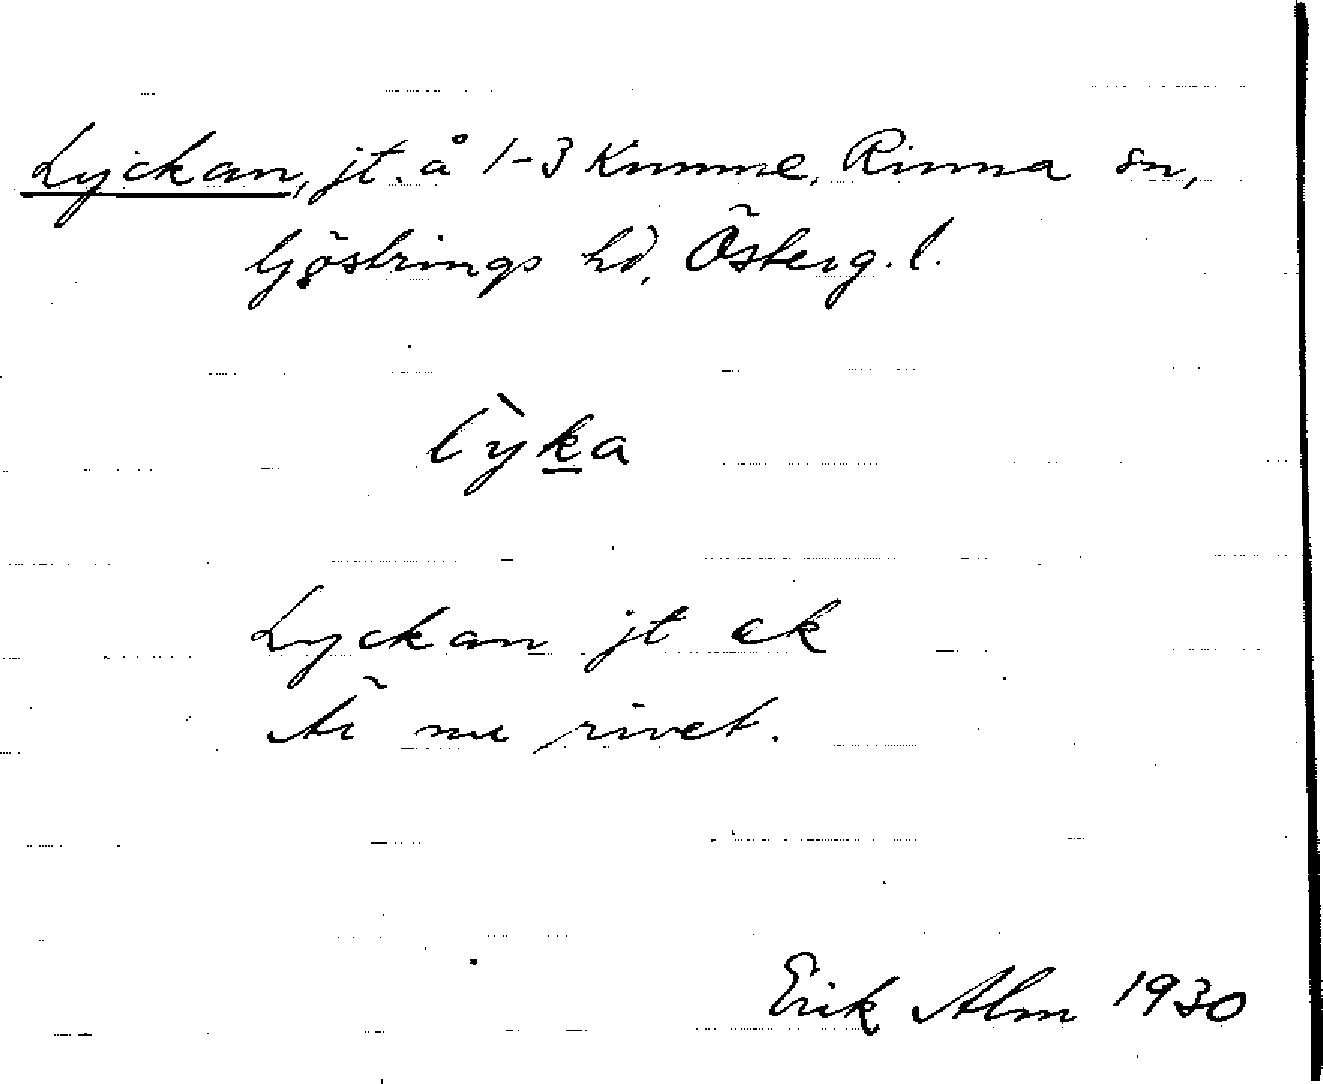 Lyckan, jt. å 1-3 Kumme, Rinna sn,
Göstrings hd, Österg. l.
lỳka
Lyckan jt ek
Är nu rivet.
Erik Alm 1930